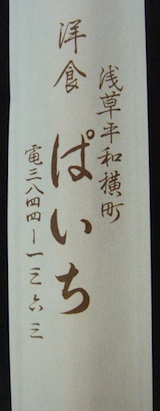 浅草平和横町
洋食 ぱいち
電三八四四ー一三六三